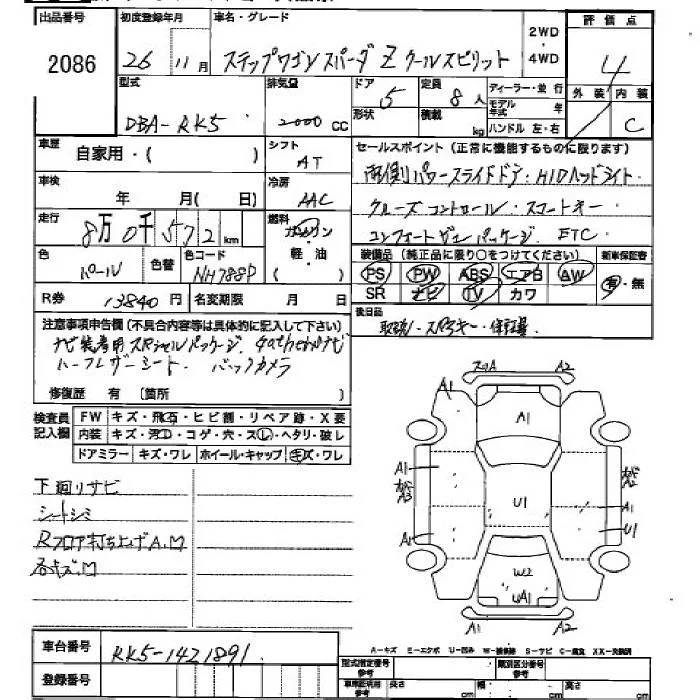 出品番号 初度登録年月 車名・グレード 2WD・4WD 評価点
2086 26 11月 ステップワゴンスパーダ Z クールスピリット 4
型式 排気量 ドア 定員 ディーラー・並行 外装 内装
DBA-RK5 2000 CC 5 8人 モデル年式 年 C
形状 積載 kg ハンドル 左・右
車歴 自家用・( ) シフト AT セールスポイント (正常に機能するものに限ります)
車検 年 月( 日) 冷房 AAC 両側パワースライドドア:HIDヘッドライト
走行 8万0千572km 燃料 ガソリン・軽・油( ) クルーズコントロール・スマートキー
コンフォートビューパッケージ. ETC
色 パール 色替 色コード NH788P 装備品 (純正品に限り○をつけてください) 新車保証書
PS PW ABS エアB AW 有・無
SR ナビ TV カワ
R券 13840円 名変期限 月 日 後日品
取説・スペアキー・保証書.
注意事項申告欄(不具合内容等は具体的に記入して下さい)
ナビ装着用スペシャルパッケージ. gathersナビ
ハーフレザーシート. バックカメラ
修復歴 有 〔箇所 〕
検査員記入欄 FW キズ・飛石・ヒビ割・リペア跡・X要
内装 キズ・汚コ・コゲ・穴・スレ・ヘタリ・破レ
ドアミラー キズ・ワレ ホイール・キャップ キズ・ワレ
下廻りサビ
シートシミ
Rフロア打ち上げA.M
各キズ.M
A1 A2
A1
A1 A2
A3 A1
U1 U1
A1
W2
UA1
A1 A2
車台番号 RK5-1421891
登録番号
A-キズ E-エクボ U-凹み W-補修跡 S-サビ C-腐食 XX-交換済
型式指定番号 参考 類別区分番号 参考
車庫証明用 参考 長さ cm 幅 cm 高さ cm